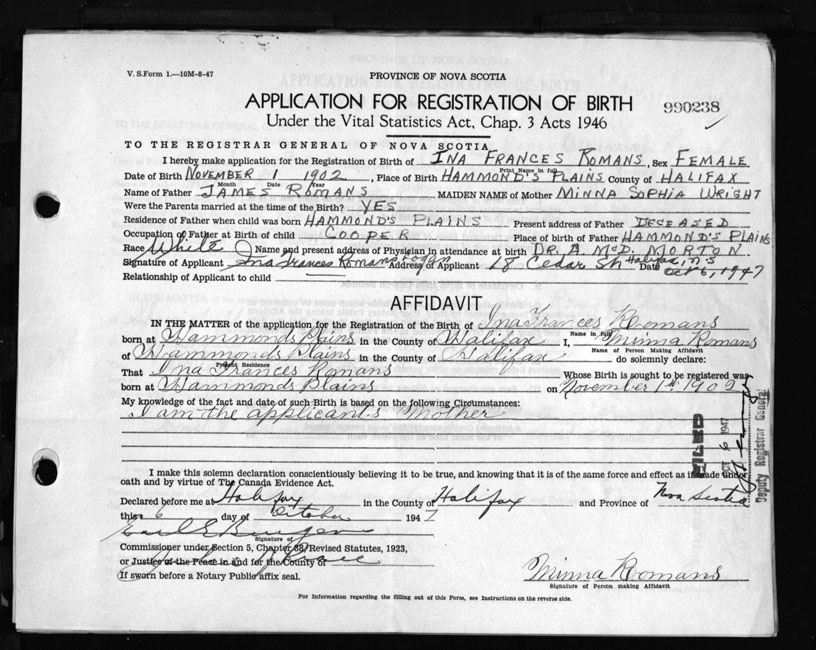 V. S. Form 1.—10M-8-47
PROVINCE OF NOVA SCOTIA
APPLICATION FOR REGISTRATION OF BIRTH
990238
Under the Vital Statistics Act, Chap. 3 Acts 1946
TO THE REGISTRAR GENERAL OF NOVA SCOTIA
I hereby make application for the Registration of Birth of INA FRANCES ROMANS, Sex FEMALE
Print Name in full
Date of Birth NOVEMBER 1 1902, Place of Birth HAMMOND'S PLAINS County of HALIFAX
Month Date Year
Name of Father JAMES ROMANS MAIDEN NAME of Mother MINNA SOPHIA WRIGHT
Were the Parents married at the time of Birth? YES
Residence of Father when child was born HAMMOND'S PLAINS Present address of Father DECEASED
Occupation of Father at Birth of child COOPER Place of birth of Father HAMMOND'S PLAINS
Race White Name and present address of Physician in attendance at birth DR. A. McD. MORTON
Signature of Applicant Ina Frances Romans Address of Applicant 18 Cedar St. Halifax, N S Date Oct 6, 1947
Relationship of Applicant to child —
AFFIDAVIT
IN THE MATTER of the application for the Registration of the Birth of Ina Frances Romans
Name in full
born at Hammonds Plains in the County of Halifax I, Minna Romans
Name of Person Making Affidavit
of Hammonds Plains in the County of Halifax do solemnly declare:
Present Residence
That Ina Frances Romans Whose Birth is sought to be registered was
born at Hammonds Plains on November 1st 1902
My knowledge of the fact and date of such Birth is based on the following Circumstances:
I am the applicant's Mother
FILED
OCT 6 1947
Deputy Registrar General
I make this solemn declaration conscientiously believing it to be true, and knowing that it is of the same force and effect as if made under
oath and by virtue of The Canada Evidence Act.
Declared before me at Halifax in the County of Halifax and Province of Nova Scotia
this 6 day of October 1947
Signature of
Commissioner under Section 5, Chapter 38, Revised Statutes, 1923,
or Justice of the Peace in and for the County of
If sworn before a Notary Public affix seal.
Minna Romans
Signature of Person making Affidavit
For Information regarding the filling out of this Form, see Instructions on the reverse side.